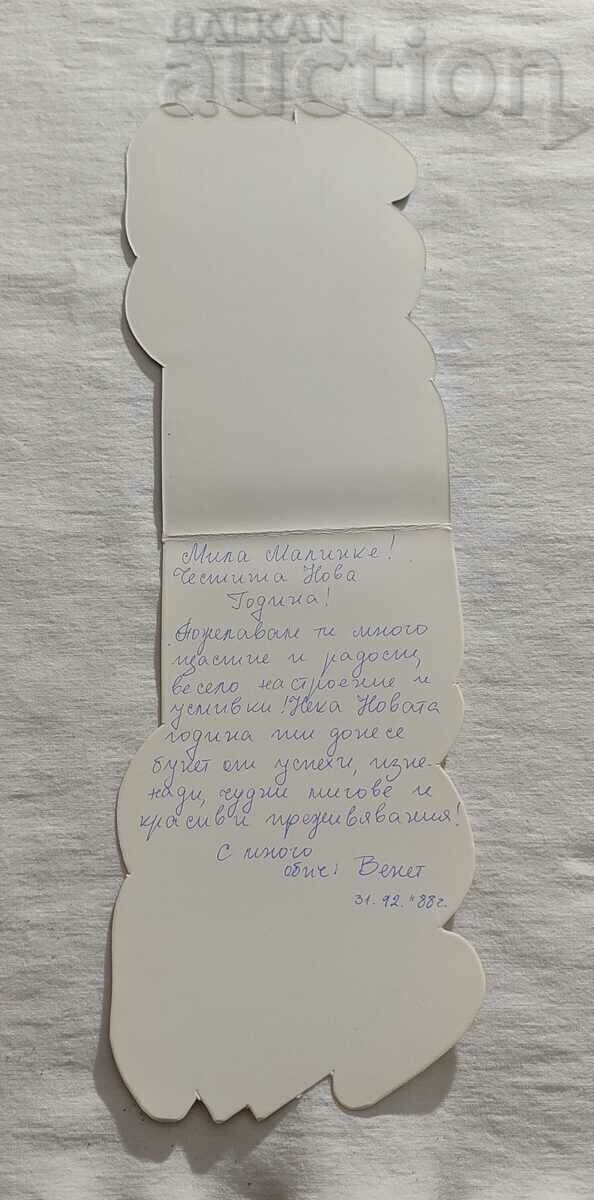 BALKAN
auction
Мила Малинке!
Честита Нова
Година!
Пожелавам ти много
щастие и радост,
весело настроение и
усмивки! Нека Новата
година ти донесе
букет от успехи, изне-
нади, чудни мигове и
красиви преживявания!
С много
обич: Венет
31. 12. "88г.